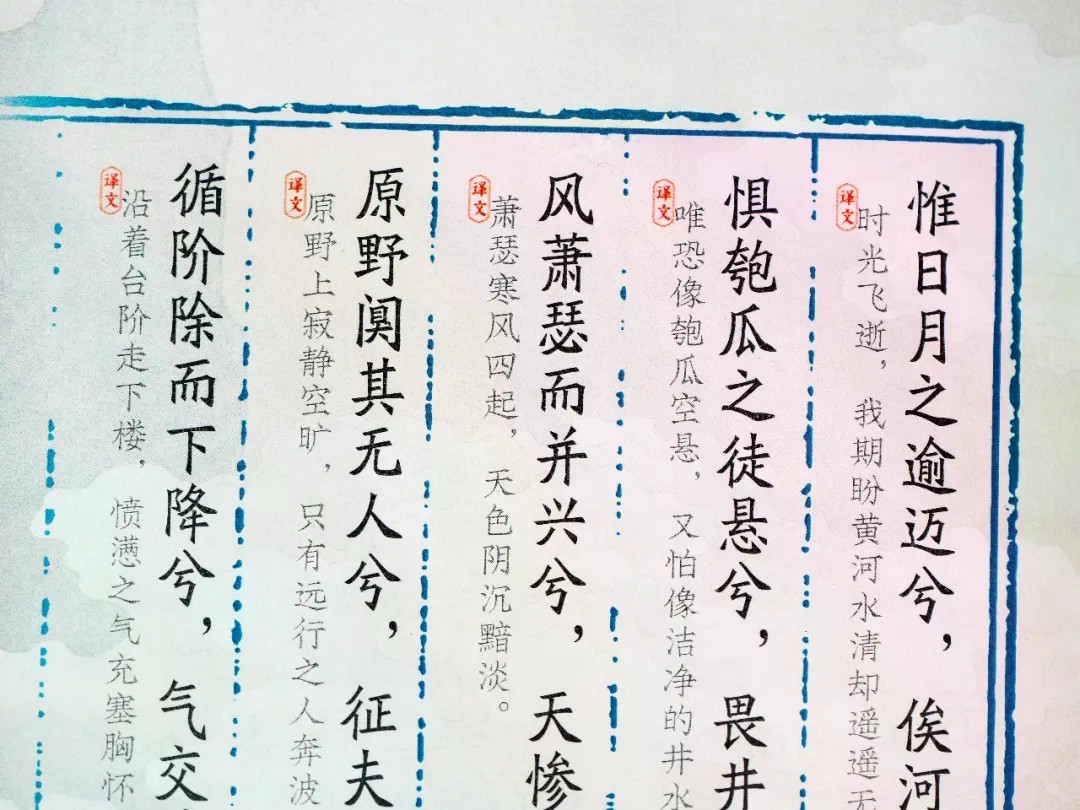 惟日月之逾迈兮，俟河
译文
时光飞逝，我期盼黄河水清却遥遥无
惧匏瓜之徒悬兮，畏井
译文
唯恐像匏瓜空悬，又怕像洁净的井水
风萧瑟而并兴兮，天惨
译文
萧瑟寒风四起，天色阴沉黯淡。
原野阒其无人兮，征夫
译文
原野上寂静空旷，只有远行之人奔波
循阶除而下降兮，气交
译文
沿着台阶走下楼，愤懑之气充塞胸怀